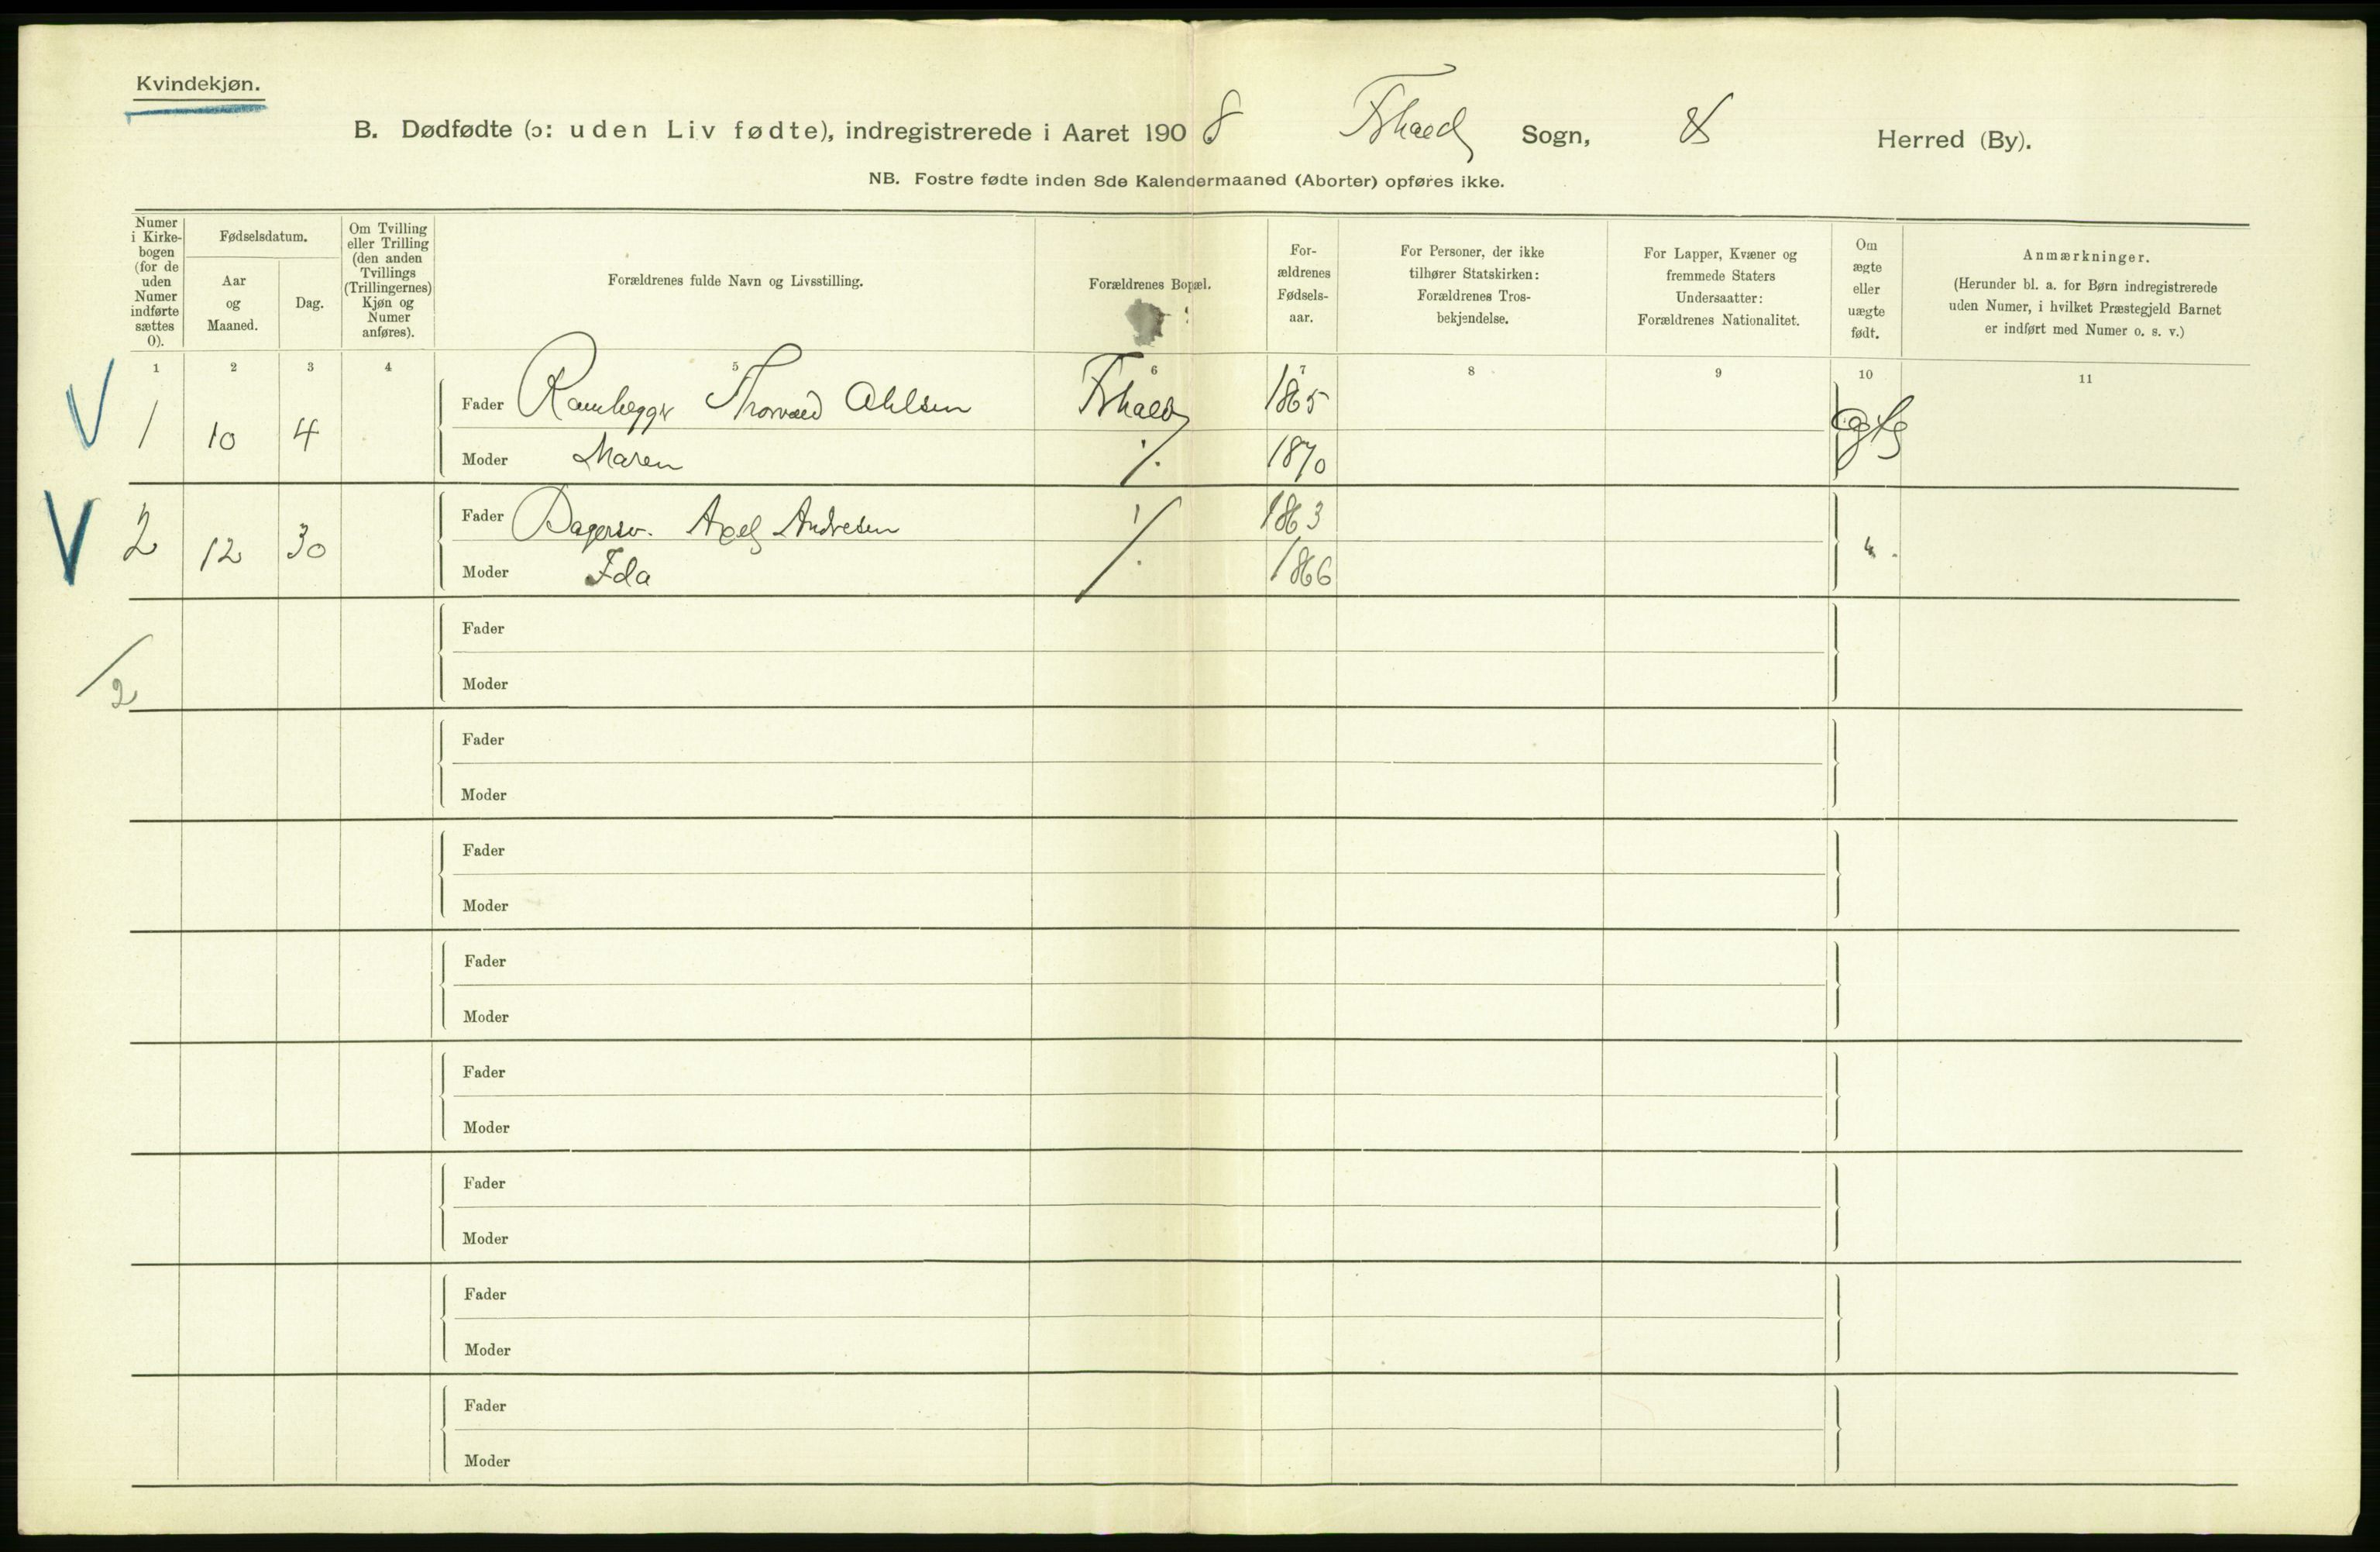 Kvindekjøn.
B. Dødfødte (ɔ: uden Liv fødte), indregistrerede i Aaret 1908 Sogn, Herred (By).
NB. Fostre fødte inden 8de Kalendermaaned (Aborter) opføres ikke.
Numer i Kirke-
bogen
(for de
uden
Numer
indførte
sættes
0).
Fødselsdatum.
Aar
og
Maaned.
Dag.
Om Tvilling
eller Trilling
(den anden
Tvillings
(Trillingernes)
Kjøn og
Numer
anføres).
Forældrenes fulde Navn og Livsstilling.
Forældrenes Bopæl.
For-
ældrenes
Fødsels-
aar.
For Personer, der ikke
tilhører Statskirken:
Forældrenes Tros-
bekjendelse.
For Lapper, Kvæner og
fremmede Staters
Undersaatter:
Forældrenes Nationalitet.
Om
ægte
eller
uægte
født.
Anmærkninger.
(Herunder bl. a. for Børn indregistrerede
uden Numer, i hvilket Præstegjeld Barnet
er indført med Numer o. s. v.)
1 2 3 4 5 6 7 8 9 10 11
1 10 4 Fader Thorvald Ahlsen 1865
Moder Maren 1870
2 12 30 Fader Axel Andresen 1863
Moder Ida 1866
Fader
Moder
2
Fader
Moder
Fader
Moder
Fader
Moder
Fader
Moder
Fader
Moder
Fader
Moder
Fader
Moder